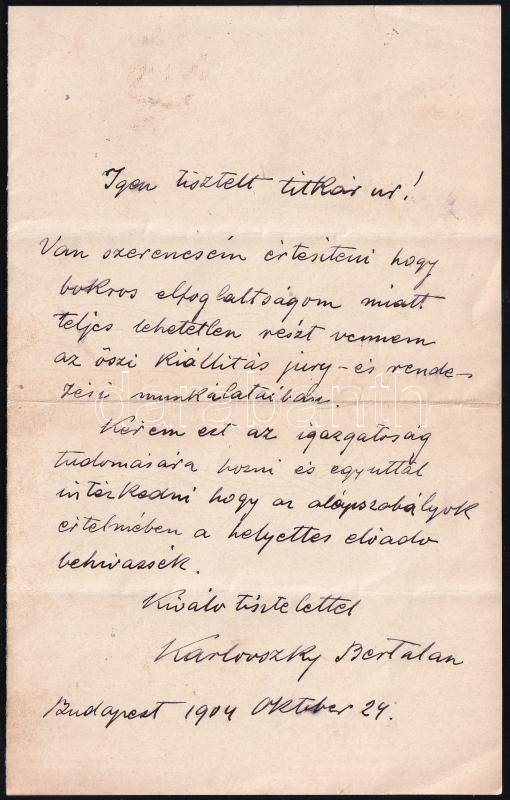 Igen tisztelt titkár ur!
Van szerencsém értesíteni hogy
bokros elfoglaltságom miatt
teljes lehetetlen részt vennem
az őszi kiállítás jury- és rende-
zési munkálataiban.
Kérem ezt az igazgatóság
tudomására hozni és egyuttál
intézkedni hogy az alapszabályok
értelmében a helyettes előadó
behivassék.
Kiváló tisztelettel
Karlovszky Bertalan
Budapest 1904 Október 24.
darabanth